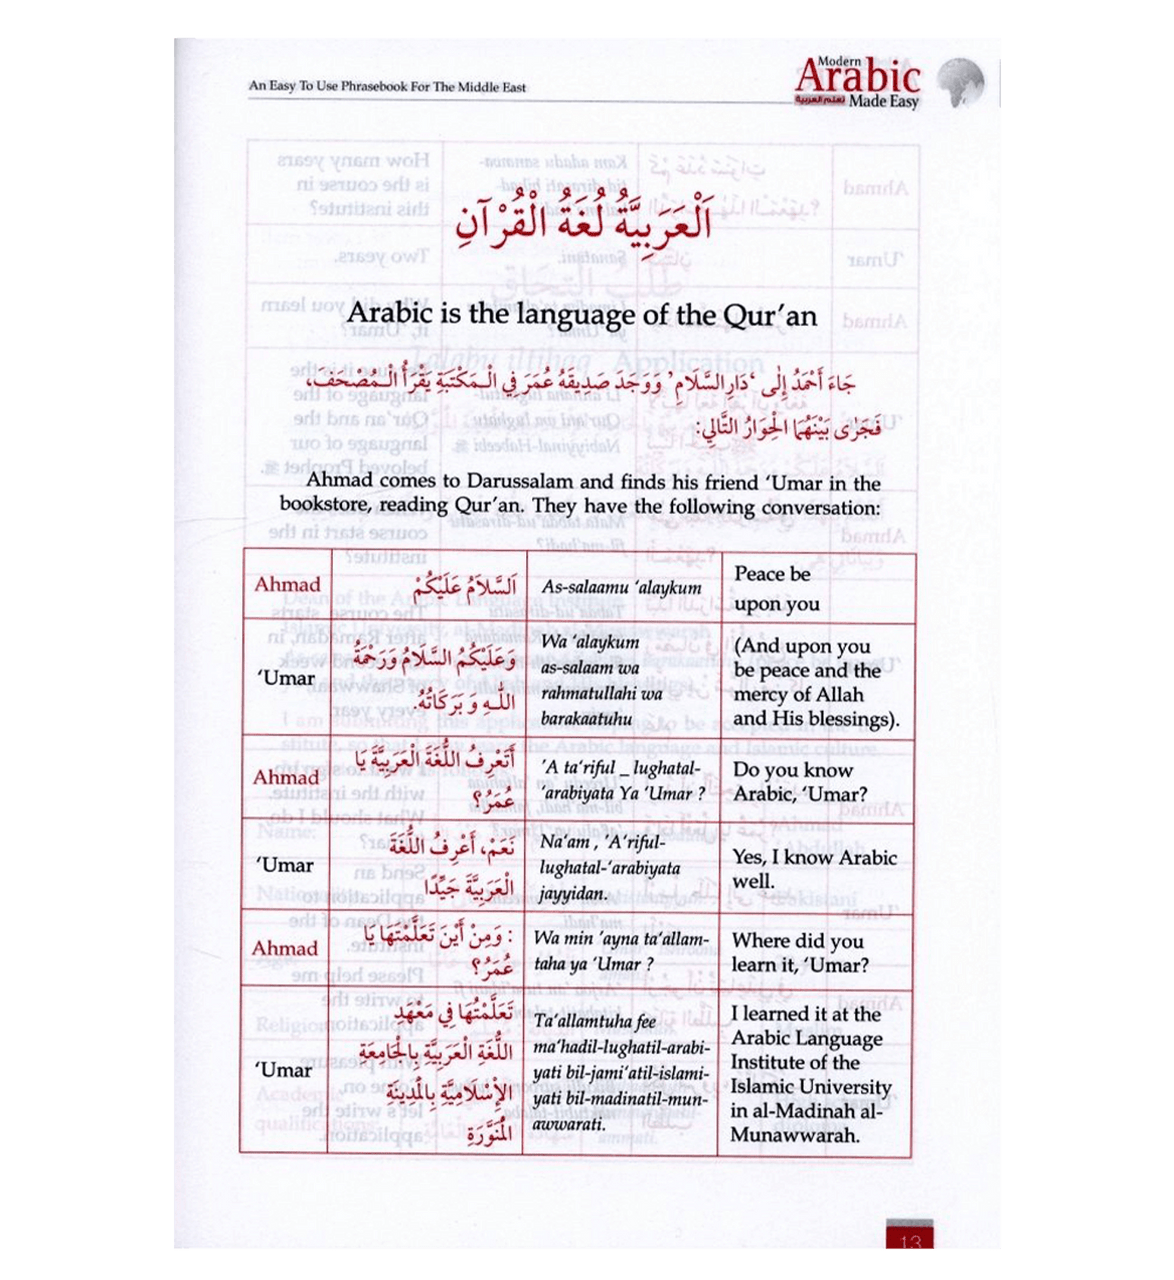 An Easy To Use Phrasebook For The Middle East
Modern
Arabic
تعلم العربية Made Easy
اَلْعَرَبِيَّةُ لُغَةُ الْقُرْآنِ
Arabic is the language of the Qur’an
جَاءَ أَحْمَدُ إِلَى ‘دَارِ السَّلَامِ’ وَوَجَدَ صَدِيقَهُ عُمَرَ فِي الْـمَكْتَبَةِ يَقْرَأُ الْـمُصْحَفَ،
فَجَرَى بَيْنَهُمَا الْحِوَارُ التَّالِي:
Ahmad comes to Darussalam and finds his friend ‘Umar in the
bookstore, reading Qur’an. They have the following conversation:
Ahmad
اَلسَّلَامُ عَلَيْكُمْ
As-salaamu ‘alaykum
Peace be
upon you
‘Umar
وَعَلَيْكُمُ السَّلَامُ وَرَحْمَةُ
اللّٰهِ وَ بَرَكَاتُهُ.
Wa ‘alaykum
as-salaam wa
rahmatullahi wa
barakaatuhu
(And upon you
be peace and the
mercy of Allah
and His blessings).
Ahmad
أَتَعْرِفُ اللُّغَةَ الْعَرَبِيَّةَ يَا
عُمَرُ؟
’A ta‘riful _ lughatal-
‘arabiyata Ya ‘Umar ?
Do you know
Arabic, ‘Umar?
‘Umar
نَعَمْ، أَعْرِفُ اللُّغَةَ
الْعَرَبِيَّةَ جَيِّدًا
Na‘am , ’A‘riful-
lughatal-‘arabiyata
jayyidan.
Yes, I know Arabic
well.
Ahmad
: وَمِنْ أَيْنَ تَعَلَّمْتَهَا يَا
عُمَرُ؟
Wa min ’ayna ta‘allam-
taha ya ‘Umar ?
Where did you
learn it, ‘Umar?
‘Umar
تَعَلَّمْتُهَا فِي مَعْهَدِ
اللُّغَةِ الْعَرَبِيَّةِ بِالْجَامِعَةِ
الإِسْلَامِيَّةِ بِالْمَدِينَةِ
الْمُنَوَّرَةِ
Ta‘allamtuha fee
ma‘hadil-lughatil-arabi-
yati bil-jami‘atil-islami-
yati bil-madinatil-mun-
awwarati.
I learned it at the
Arabic Language
Institute of the
Islamic University
in al-Madinah al-
Munawwarah.
13